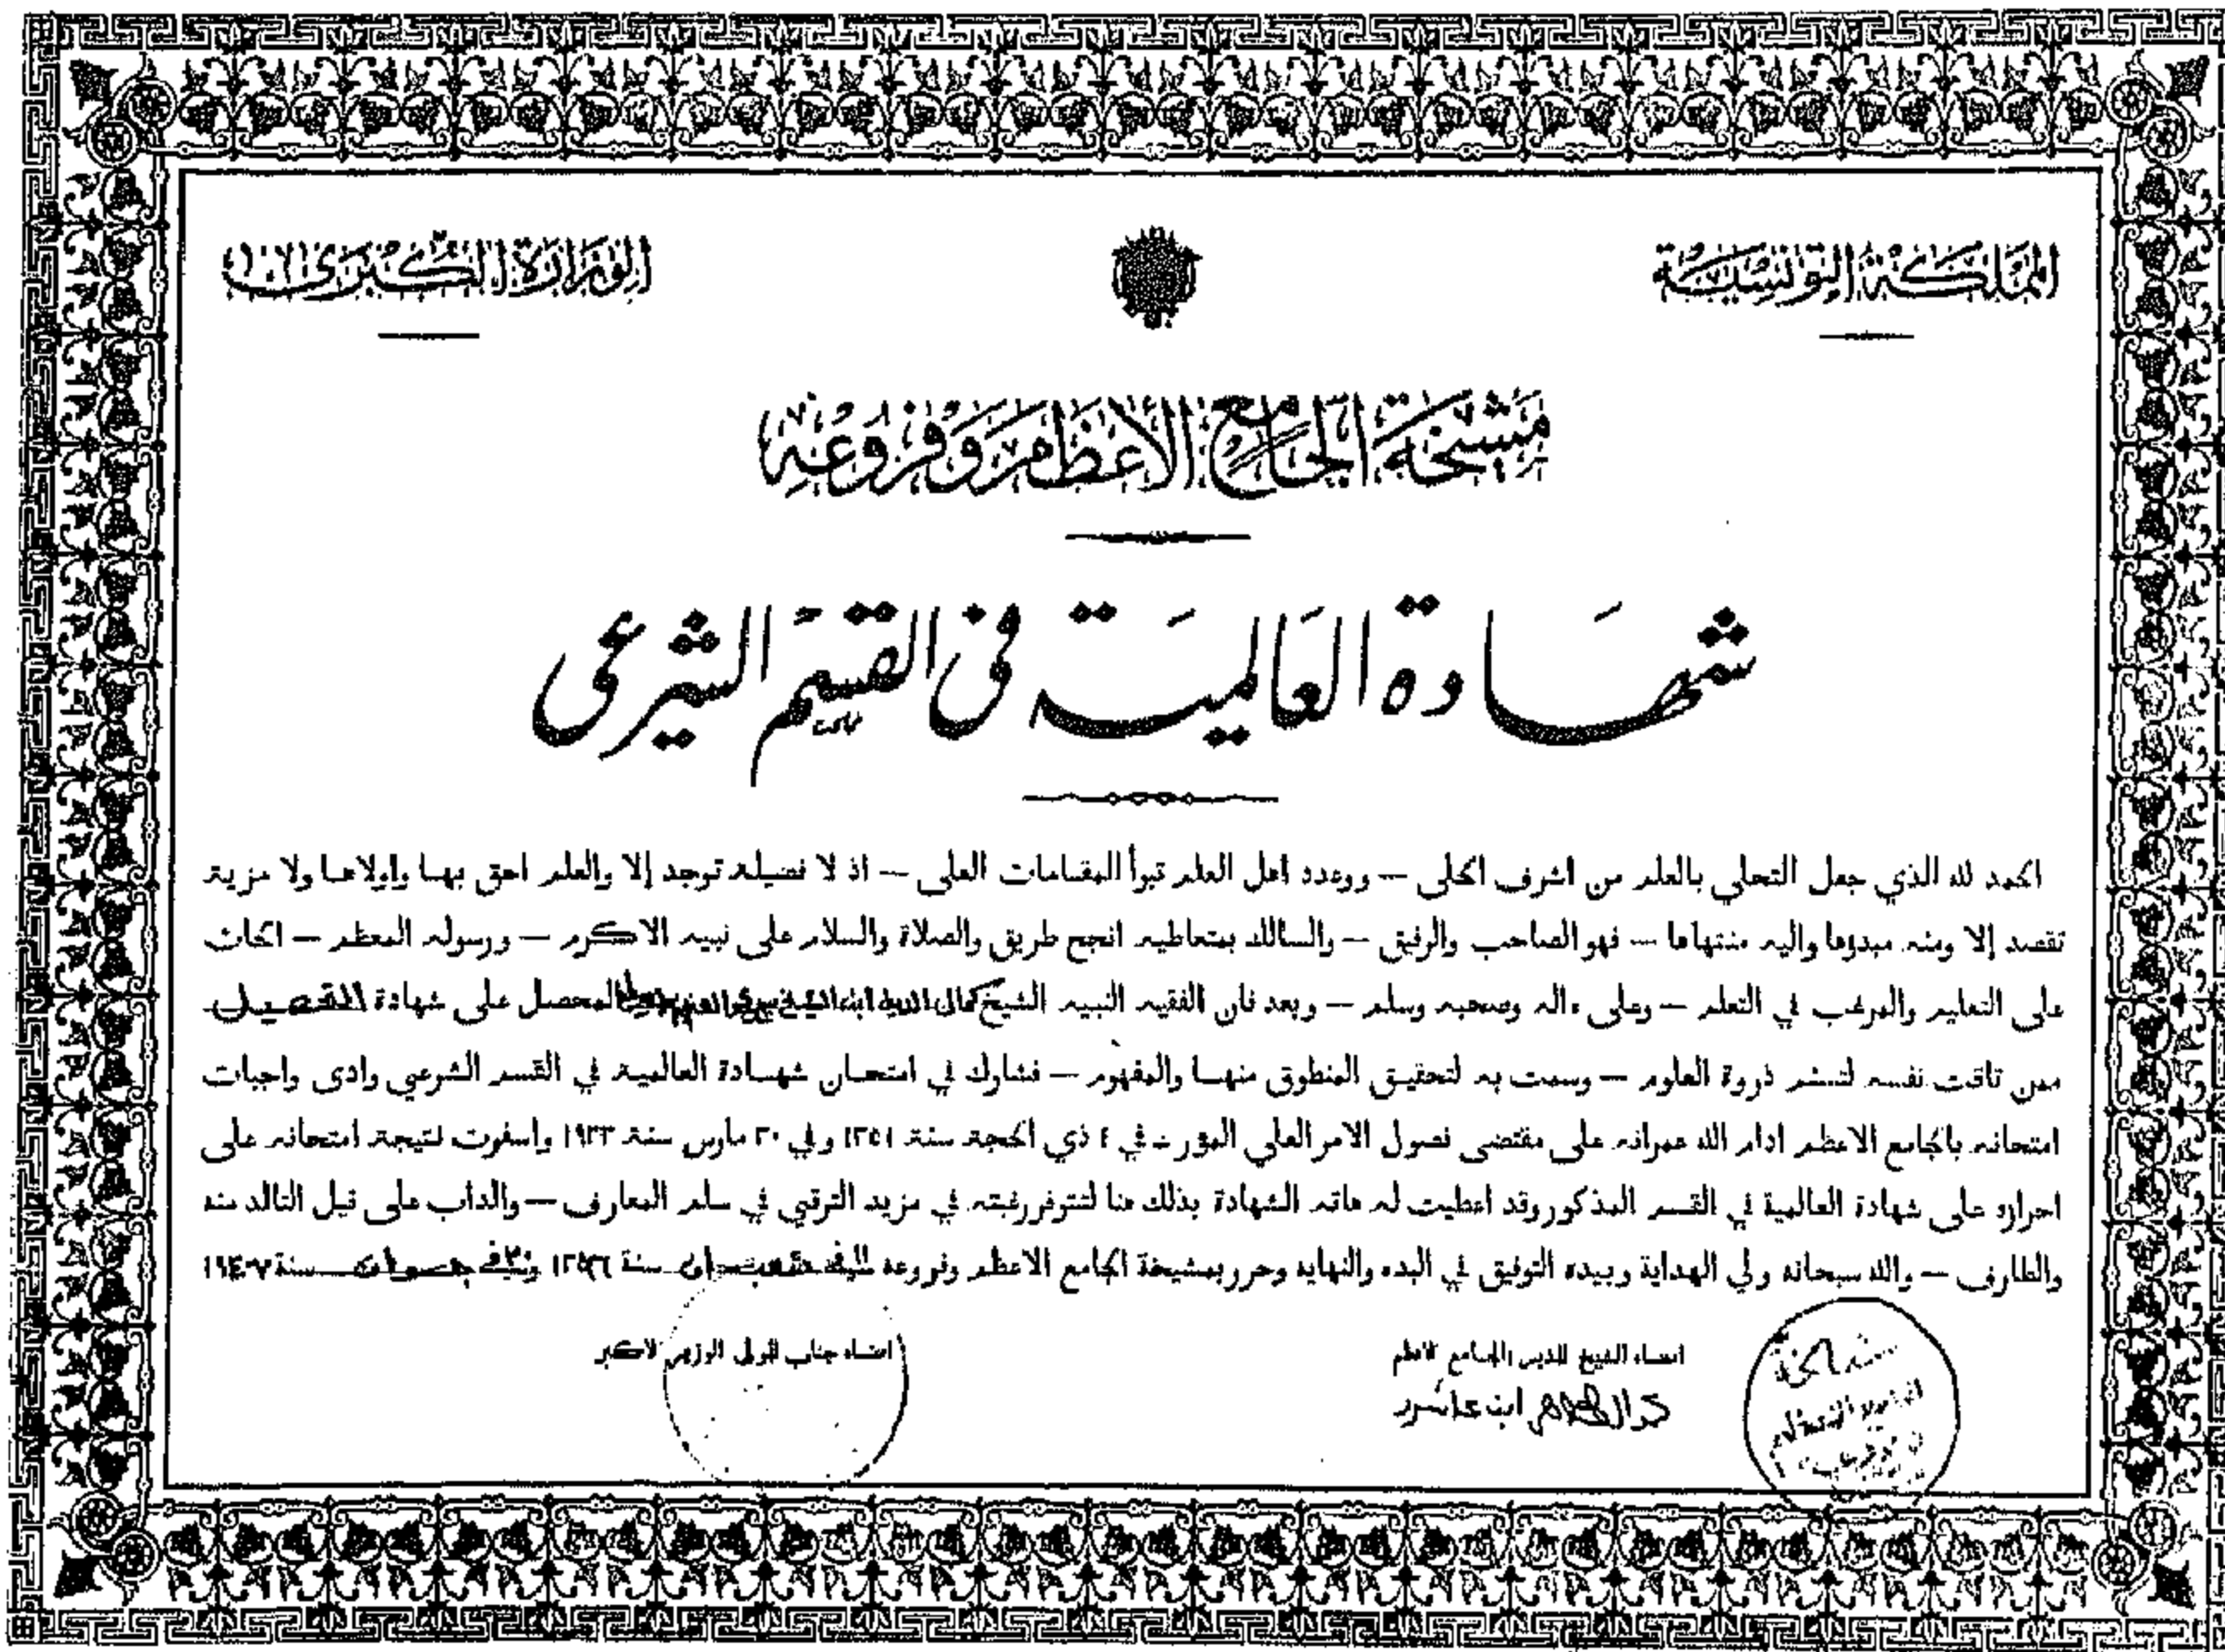 المملكة التونسية
الوزارة الكبرى
مشيخة الجامع الأعظم وفروعه
شهادة العالمية في القسم الشرعي
الحمد لله الذي جعل التحلي بالعلم من اشرف الحلى — ووعد اهل العلم تبوأ المقامات العلى — اذ لا فضيلة توجد إلا والعلم احق بها واولاها ولا مزية
تقصد إلا ومنه مبدؤها واليه منتهاها — فهو الصاحب والرفيق — والسالك بمتعاطيه انجح طريق والصلاة والسلام على نبيه الاكرم — ورسوله المعظم — الحاث
على التعليم والمرغب في التعلم — وعلى ءاله وصحبه وسلم — وبعد فان الفقيه النبيه الشيخ كمال الدين ابن الشيخ المحصل على شهادة التحصيل
ممن تاقت نفسه لتسنم ذروة العلوم — وسمت به لتحقيق المنطوق منها والمفهوم — فشارك في امتحان شهادة العالمية في القسم الشرعي وادى واجبات
امتحانه بالجامع الاعظم ادام الله عمرانه على مقتضى فصول الامر العلي المؤرخ في ٤ ذي الحجة سنة ١٣٥١ وفي ٣٠ مارس سنة ١٩٣٣ واسفرت نتيجة امتحانه على
احرازه على شهادة العالمية في القسم المذكور وقد اعطيت له هاته الشهادة بذلك هنا لتتوفر رغبته في مزيد الترقي في سلم المعارف — والداب على نيل التالد منه
والطارف — والله سبحانه ولي الهداية وبيده التوفيق في البدء والنهاية وحرر بمشيخة الجامع الاعظم وفروعه سنة وفي جوان سنة
امضاء الشيخ المدير للجامع الاعظم
امضاء جناب المولى الوزير الاكبر
محمد الطاهر ابن عاشور